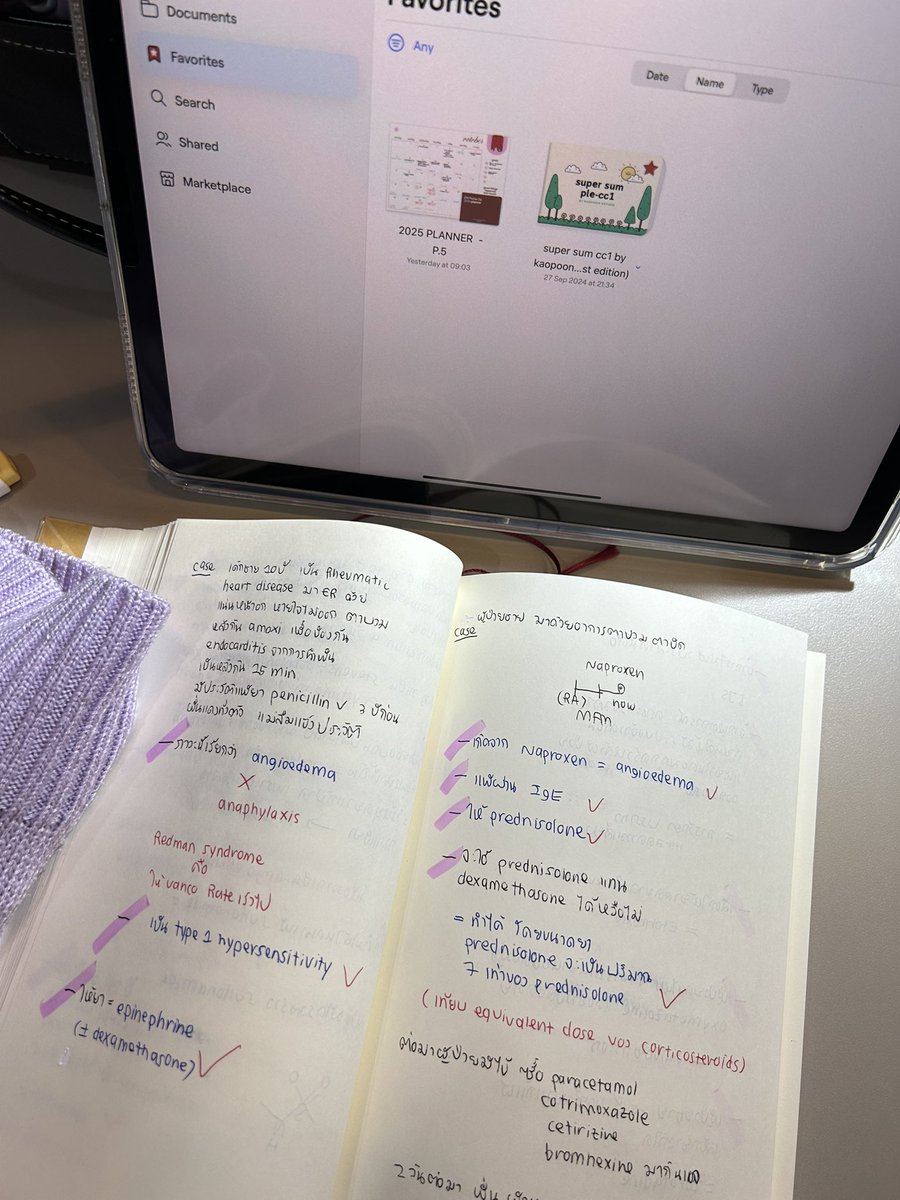 Favorites
Documents
Any
Favorites
Date Name Type
Search
Shared
Marketplace
super sum
ple-cc1
2025 PLANNER -
P.5
Yesterday at 09:03
super sum cc1 by
kaopoon...st edition)
27 Sep 2024 at 21:34
case เด็กชาย 10ปี เป็น Rheumatic
heart disease มา ER ด้วย
แน่นหน้าอก หายใจไม่ออก ตาบวม
หลังกิน amoxi เพื่อป้องกัน
endocarditis จากการทำฟัน
เป็นหลังกิน 15 min
มีประวัติแพ้ยา penicillin V 3 ปีก่อน
ผื่นแดงทั้งตัว แม่ลืมแจ้งประวัติ
- ภาวะนี้เรียกว่า angioedema
X
anaphylaxis
Redman syndrome
คือ
ให้ vanco Rate เร็วไป
- เป็น type 1 hypersensitivity ✓
- ให้ยา = epinephrine
(± dexamethasone) ✓
case ผู้ป่วยชาย มาด้วยอาการตาบวม ตาปิด
Naproxen
(RA) now
- เกิดจาก Naproxen = angioedema ✓
- แพ้ผ่าน IgE ✓
- ให้ prednisolone ✓
- จะใช้ prednisolone แทน
dexamethasone ได้หรือไม่
= ทำได้ โดยขนาดยา
prednisolone จะเป็นปริมาณ
7 เท่าของ prednisolone ✓
(เทียบ equivalent dose ของ corticosteroids)
ต่อมาผู้ป่วยมีไข้ ซื้อ paracetamol
cotrimoxazole
cetirizine
bromhexine มากินเอง
2 วันต่อมา ผื่น